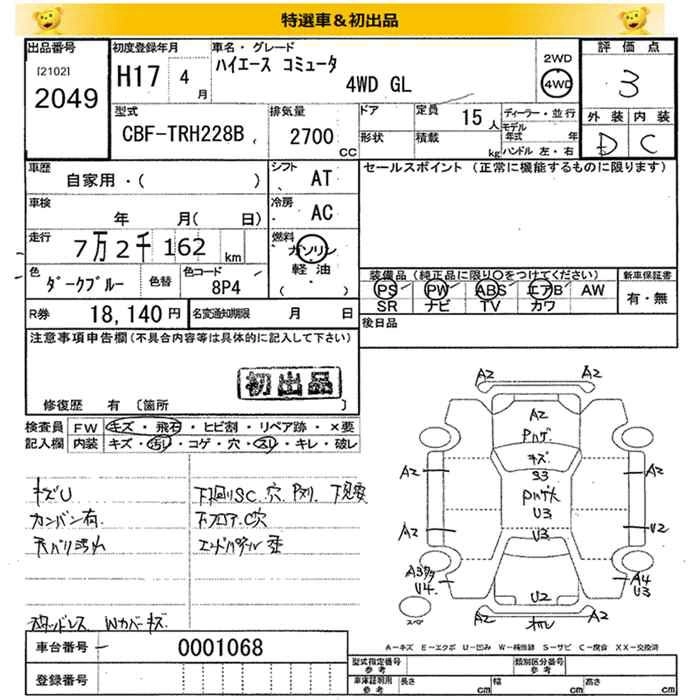 特選車＆初出品
出品番号
[2102]
2049
初度登録年月
H17 4月
車名・グレード
ハイエース コミュータ
4WD GL
2WD
4WD
評価点
3
外装 内装
D C
型式
CBF-TRH228B
排気量
2700 CC
ドア
定員 15人
形状
積載 kg
ディーラー・並行
モデル年式 年
ハンドル 左・右
車歴
自家用・( )
シフト
AT
セールスポイント (正常に機能するものに限ります)
車検
年 月( 日)
冷房
AC
走行
7万2千162 km
燃料
ガソリン
軽油
( )
色
ダークブルー
色替
色コード
8P4
装備品(純正品に限り〇をつけてください)
PS PW ABS エアB AW
SR ナビ TV カワ
新車保証書
有・無
R券 18,140円
名変通知期限 月 日
後日品
注意事項申告欄(不具合内容等は具体的に記入して下さい)
初出品
修復歴 有 [箇所 ]
検査員記入欄
FW キズ・飛石・ヒビ割・リペア跡・×要
内装 キズ・汚レ・コゲ・穴・スレ・キレ・破レ
キズU
カンバン有
天バリ汚れ
下廻りSC.穴
下フロアC穴
スタッドレス Wカバーキズ
A2
A2 A2
A2
Pハゲ
キズ
S3
A2 A2
Pハゲ大
U3
A2 U3 U2
U4 U2 A4
U3
スペア
A－キズ E－エクボ U－凹み W－補修跡 S－サビ C－腐食 XX－交換済
車台番号 0001068
登録番号
型式指定番号
参考
類別区分番号
参考
車庫証明用
参考
長さ cm 幅 cm 高さ cm